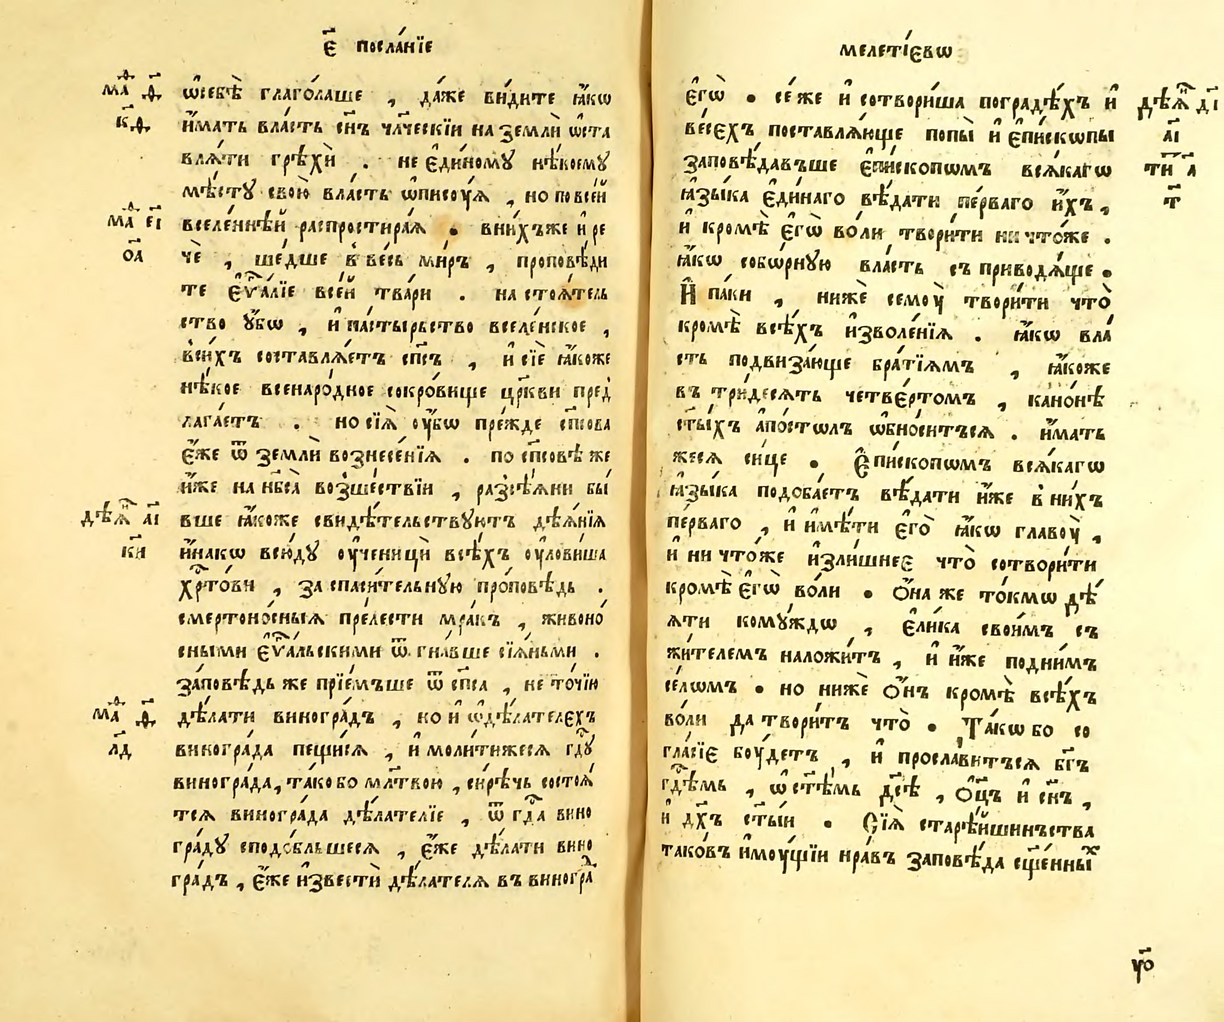 є҃ посла́нїе
ма҃ ѳ҃
к҃ѳ
ма҃ е҃і
о҃а
дѣѧ҃ а҃і
к҃и
ма҃ ѳ҃
л҃д
ѡ҆себѣ̀ глаго́лаше , да́же ви́дите ꙗ҆́кѡ
и҆́мать вла́сть сн҃ъ чл҃ческїи на землѝ ѡ҆ста
влѧ́ти грѣхѝ . не є҆ди́номꙋ нѣ́коемꙋ
мѣ́стꙋ свою̀ вла́сть ѡ҆писꙋ́ѧ , но по все́й
вселе́ннѣй распростира́ѧ . вни́хъже и҆ ре
чѐ , ше́дше в ве́сь ми́ръ , проповѣ́ди
те є҆ѵⷢ҇а́лїе все́й тва́ри . на стоѧ́тель
ство ᲂу҆́бѡ , и҆ па́стырьство вселе́нское ,
всѝхъ составлѧ́етъ сп҃съ , и҆ сїѐ ꙗ҆́коже
нѣ́кое всенаро́дное сокро́вище цр҃кви пред
лага́етъ . но сїѧ̀ ᲂу҆́бѡ пре́жде сп҃сова
є҆́же ѿ землѝ вознесе́нїѧ . по сп҃совѣ же
и҆́же на нб҃са̀ возше́ствїи , разсѣ́ѧни бы́
вше ꙗ҆́коже свидѣ́тельствꙋютъ дѣѧ́нїѧ
и҆на́кѡ всю́дꙋ ᲂу҆ченицы̀ всѣ́хъ ᲂу҆лови́ша
хрⷭ҇то́ви , за спаси́тельнꙋю про́повѣдь .
смертоно́сныѧ пре́лести мра́къ , живоно́
сными є҆ѵⷢ҇а́льскими ѿгна́вше сїѧ́ньми .
за́повѣдь же прїе́мъше ѿ сп҃са , не то́чїю
дѣ́лати виногра́дъ , но и҆ ѡ҆ дѣ́лателехъ
виногра́да пещи́сѧ , и҆ моли́тижесѧ гдⷭ҇ꙋ́
виногра́да , та́ко бо мл҃твою , си́рѣчь состоѧ́
тсѧ виногра́да дѣ́лателїе , ѿ гдⷭ҇а вино
гра́дꙋ сподо́бльшеесѧ , є҆́же дѣ́лати вино
гра́дъ , є҆́же и҆звестѝ дѣ́лателѧ въ виногра́ⷣ
меле́тїєвѡ
є҆гѡ̀ . се́ же и҆ сотвори́ша по градѣ́хъ и҆
ве́сєхъ поставлѧ́юще попы̀ и҆ є҆пи́скѡпы
заповѣ́давъше є҆пи́скопѡмъ всѧ́кагѡ
ꙗ҆зы́ка є҆ди́наго вѣ́дати пе́рваго и҆́хъ ,
и҆ кромѣ̀ є҆гѡ̀ во́ли твори́ти ничто́же .
ꙗ҆́кѡ собѡ́рнꙋю вла́сть съ приводѧ́ще .
И҆ па́ки , нижѐ семоꙋ̀ твори́ти что̀
кромѣ̀ всѣ́хъ и҆зволе́нїѧ . ꙗ҆́кѡ вла́
сть подвиза́юще бра́тїѧмъ , ꙗ҆́коже
въ три́десѧть четве́ртомъ , кано́нѣ
ст҃ы́хъ а҆по́столъ ѡ҆бно́ситъсѧ . и҆́мать
жесѧ си́це . Є҆пи́скопѡмъ всѧ́кагѡ
ꙗ҆зы́ка подоба́етъ вѣ́дати и҆́же в ни́хъ
пе́рваго , и҆ и҆мѣ́ти є҆го̀ ꙗ҆́кѡ главоꙋ̀ ,
и҆ ничто́же и҆зли́шнеє что̀ сотвори́ти
кромѣ̀ є҆гѡ̀ во́ли . Ѻ҆́на же то́кмѡ дѣ́
ѧти комꙋ́ждѡ , є҆ли́ка свои́мъ съ
жи́телемъ наложи́тъ , и҆ и҆́же под ни́мъ
се́лѡмъ . но нижѐ Ѻ҆́нъ кромѣ̀ всѣ́хъ
во́ли да твори́тъ что̀ . Та́кѡ бо со
гла́сїє боꙋ́детъ , и҆ просла́витъсѧ бг҃ъ
гдⷭ҇е́мь , ѡ҆ ст҃ѣ́мь дс҃ѣ , Ѻ҆ц҃ъ и҆ сн҃ъ ,
и҆ дх҃ъ ст҃ы́и . Сїѧ̀ старѣ́йшинъства
тако́въ и҆мꙋ́щїи нра́въ заповѣ́да сщ҃е́нныⷯ
дѣѧ҃ д҃і
а҃і
ти҃ а҃
т҃
ѱ҃о